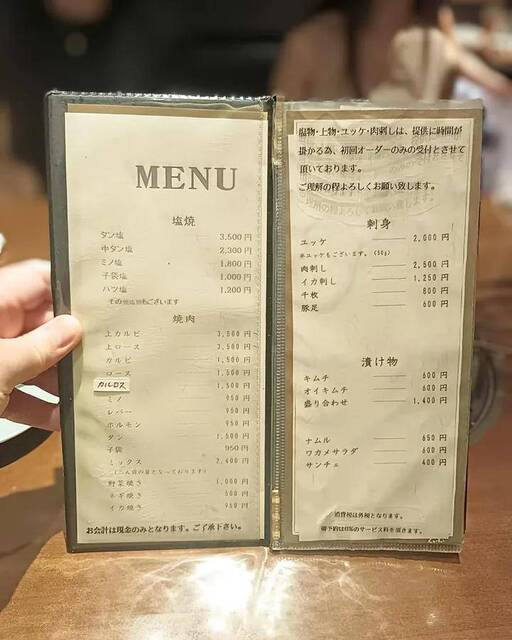 MENU
塩焼
タン塩 3,500円
中タン塩 2,300円
ミノ塩 1,800円
子袋塩 1,000円
ハツ塩 1,200円
その他塩物もございます
焼肉
上カルビ 3,500円
上ロース 3,500円
カルビ 1,500円
ロース 1,500円
カルロス 1,500円
ミノ 950円
レバー 950円
ホルモン 950円
タン 1,500円
子袋 950円
ミックス 2,400円
野菜焼き 1,000円
ネギ焼き 500円
イカ焼き 950円
お会計は現金のみとなります。ご了承下さい。
塩物・上物・ユッケ・肉刺しは、提供に時間が
掛かる為、初回オーダーのみの受付とさせて
頂いております。
ご理解の程よろしくお願い致します。
刺身
ユッケ 2,000円
半ユッケもございます。(50g)
肉刺し 2,500円
イカ刺し 1,250円
千枚 800円
豚足 600円
漬け物
キムチ 600円
オイキムチ 600円
盛り合わせ 1,400円
ナムル 650円
ワカメサラダ 600円
サンチェ 400円
消費税は外税となります。
のサービス料を頂きます。